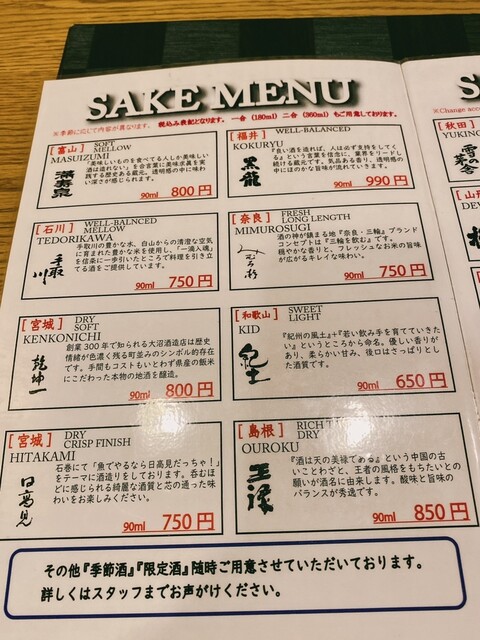 SAKE MENU
※季節に応じて内容が異なります。 税込み表記となります。 一合(180ml) 二合(360ml) もご用意しております。
[富山] SOFT
MELLOW
MASUIZUMI
「美味しいものを食べてる人しか美味しい
酒は造れない」を合言葉に美味求眞を実
践する歴史ある蔵元。透明感の中に味わ
い深さが感じられます。
満寿泉
90ml 800円
[福井] WELL-BALANCED
KOKURYU
『良い酒を造れば、人は必ず支持してく
る』という言葉を信念に、業界をリードし
続ける蔵元です。気品ある香り、透明感の
中にほのかな旨味が感じられます。
黒龍
90ml 990円
[石川] WELL-BALNCED
MELLOW
TEDORIKAWA
手取川の豊かな水、白山からの清澄な空気
に育まれた豊かな米を使用し、「一滴入魂」
を信条に一歩引いたところで料理を引き立
てる酒をご提供しています。
手取川
90ml 750円
[奈良] FRESH
LONG LENGTH
MIMUROSUGI
酒の神が鎮まる地『奈良・三輪』ブランド
コンセプトは『三輪を飲む』です。
穏やかな香りと、フレッシュなお米の旨味
が広がるキレイな味わい。
みむろ杉
90ml 750円
[宮城] DRY
SOFT
KENKONICHI
創業300年で知られる大沼酒造店は歴史
情緒が色濃く残る町並みのシンボル的存在
です。手間もコストもいとわず県産の飯米
にこだわった本物の地酒を醸造。
乾坤一
90ml 800円
[和歌山] SWEET
LIGHT
KID
『紀州の風土』+『若い飲み手を育てていきた
い』というところから命名。優しい香りが
あり、柔らかい甘み、後口はさっぱりとし
た酒質です。
紀土
90ml 650円
[宮城] DRY
CRISP FINISH
HITAKAMI
石巻にて「魚でやるなら日高見だっちゃ!」
をテーマに酒造りをしております。呑むほ
どに感じられる綺麗な酒質と芯の通った味
わいをお楽しみください。
日高見
90ml 750円
[島根] RICH
DRY
OUROKU
『酒は天の美禄である』という中国の古
いことわざと、王者の風格をもちたいとの
願いが酒名に由来します。酸味と旨味の
バランスが秀逸です。
王祿
90ml 850円
その他『季節酒』『限定酒』随時ご用意させていただいております。
詳しくはスタッフまでお声がけください。
※Change acc
[秋田]
YUKINO
雪の茅舎
[山形